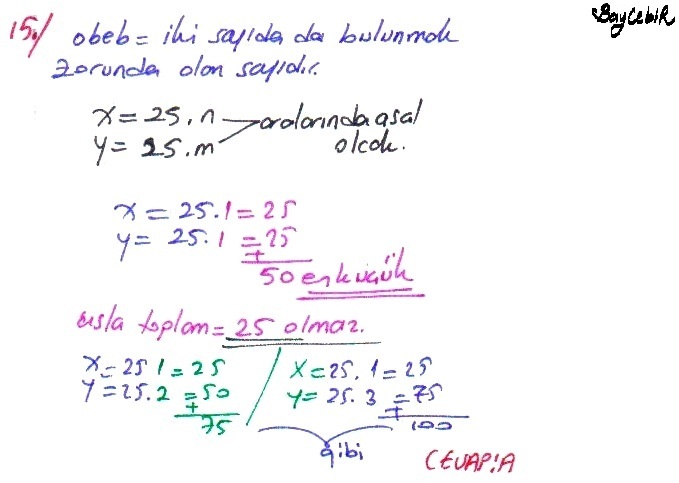 BayCebiR
15./ obeb = iki sayıda da bulunmak
zorunda olan sayıdır.
x = 25.n
y = 25.m
aralarında asal
olcak.
x = 25.1 = 25
y = 25.1 = 25
+
50 en küçük
asla toplam = 25 olmaz.
x = 25 1 = 25
y = 25.2 = 50
+
75
/
x = 25.1 = 25
y = 25.3 = 75
+
100
gibi
CEVAP:A